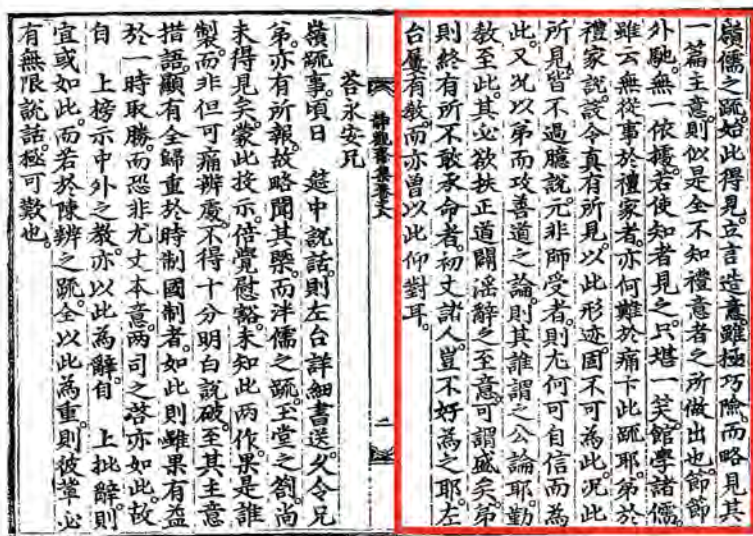 嶺儒之疏始此得見立言造意雖極巧險而略見其
一篇主意則似是全不知禮意者之所做出也節節
外馳無一依據若使知者見之只堪一笑館學諸儒
雖云無從事於禮家者亦何難於痛下此疏耶弟於
禮家說設令真有所見以此形迹固不可為此況此
所見皆不過臆說元非師受者則尤何可自信而為
此又況以弟而攻善道之論則其誰謂之公論耶勤
教至此其必欲扶正道闢淫辭之至意可謂盛矣弟
則終有所不敢承命者初丈諸人豈不好為之耶左
台屢有教而亦曾以此仰對耳
靜觀齋集卷之六
二
答永安兄
嶺疏事頃日 筵中說話則左台詳細書送久令兄
弟亦有所報故略聞其槩而泮儒之疏玉堂之劄尚
未得見矣蒙此投示倍覺慰豁未知此兩作果是誰
製而非但可痛辨處不得十分明白說破至其主意
措語顯有全歸重於時制國制者如此則雖果有益
於一時取勝而恐非尤丈本意兩司之啓亦如此故
自 上榜示中外之教亦以此為辭自 上批辭則
宜或如此而若於陳辨之疏全以此為重則彼輩必
有無限說話極可歎也